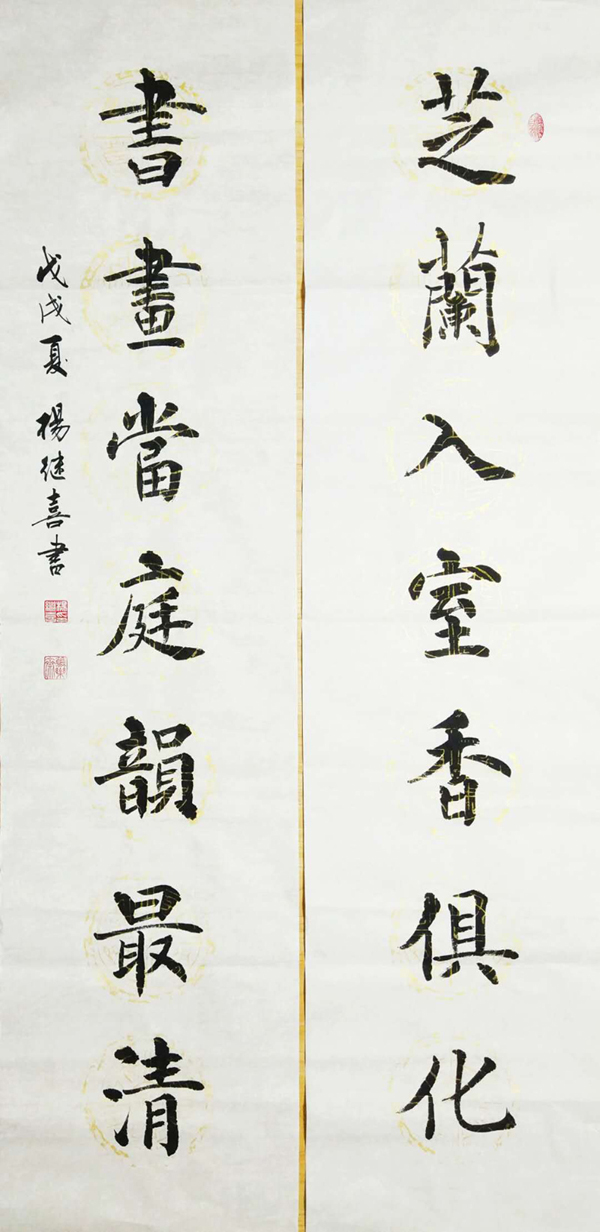 芝蘭入室香俱化
書畫當庭韻最清
戊戌夏 楊继喜書